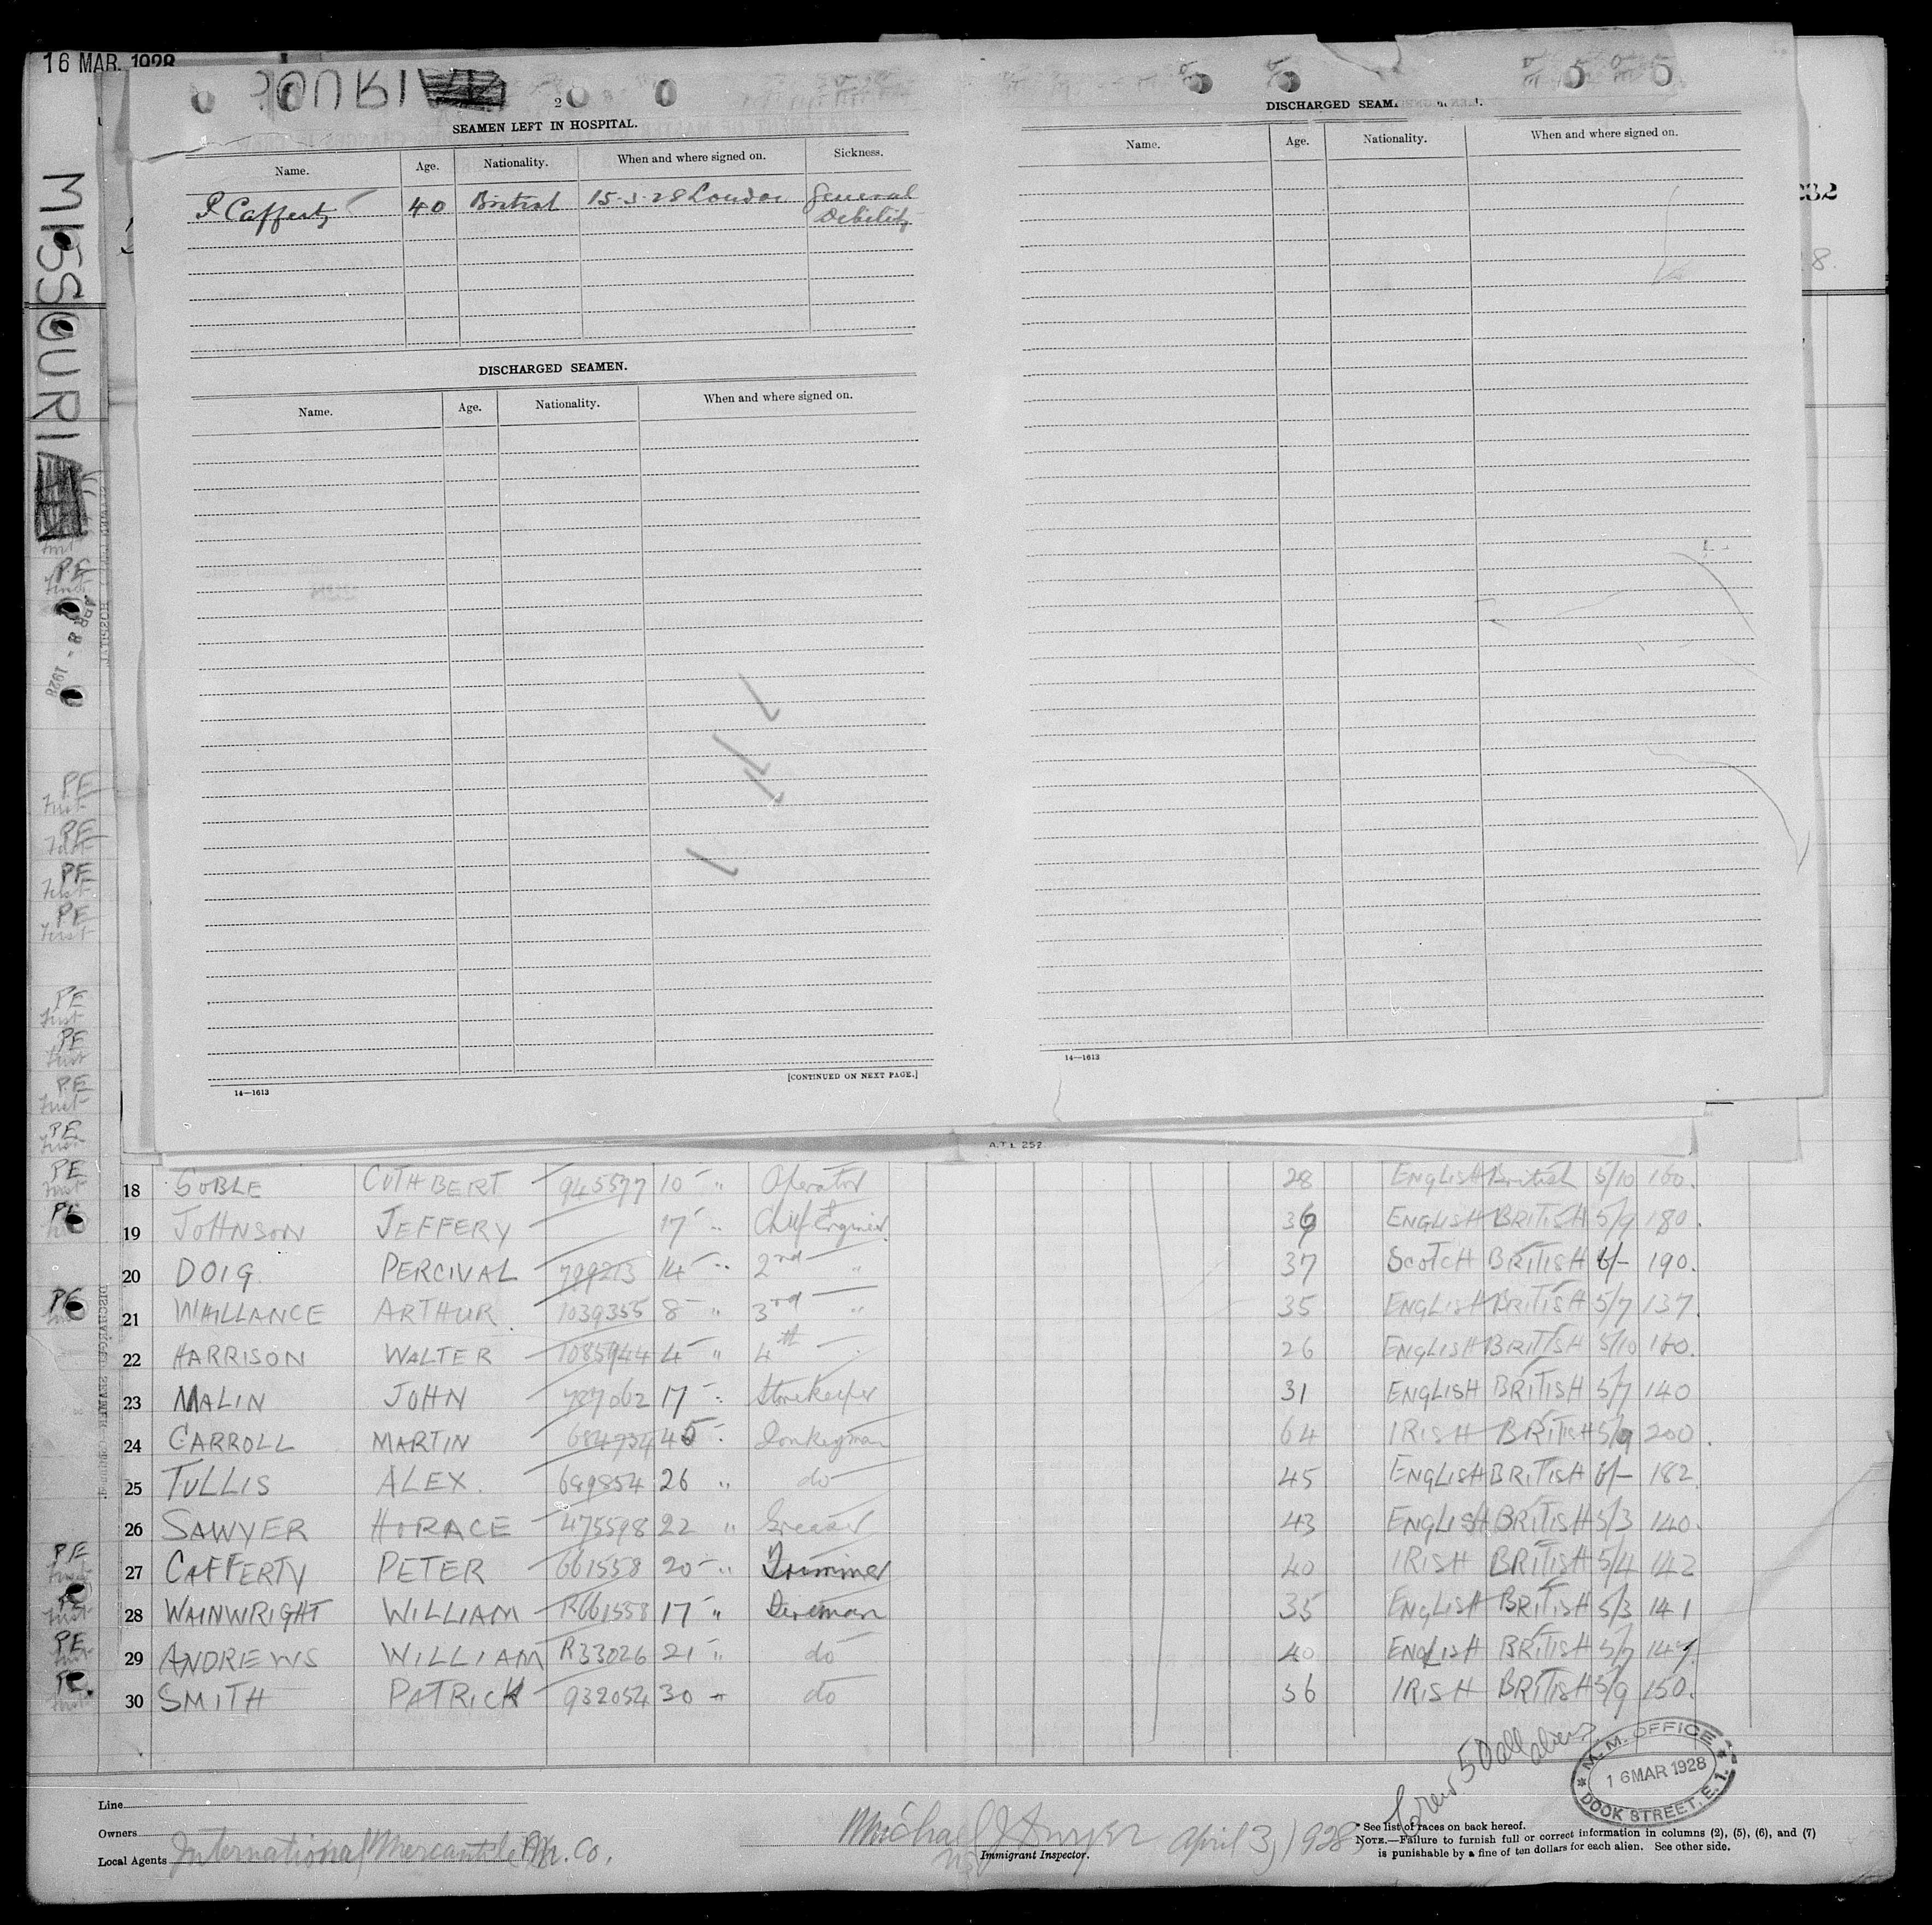 16 MAR. 1928
MISSOURI
2
SEAMEN LEFT IN HOSPITAL.
Name. Age. Nationality. When and where signed on. Sickness.
P Cafferty 40 British 15-3-28 London General
Debility
DISCHARGED SEAMEN.
Name. Age. Nationality. When and where signed on.
14—1613
[CONTINUED ON NEXT PAGE.]
DISCHARGED SEAM
Name. Age. Nationality. When and where signed on.
14—1613
A.T.L 257
18 CUTHBERT 945577 10 " Operator 28 ENGLISH British 5/10 160.
19 JOHNSON JEFFERY 17 " Chief Engineer 36 ENGLISH BRITISH 5/9 180.
20 DOIG PERCIVAL 14 " 2nd " 37 SCOTCH BRITISH 6/- 190.
21 WHILLANCE ARTHUR 1039355 8 " 3rd " 35 ENGLISH BRITISH 5/7 137.
22 HARRISON WALTER 1085944 4 " 4th 26 ENGLISH BRITISH 5/10 160.
23 MALIN JOHN 787062 17 " Storekeeper 31 ENGLISH BRITISH 5/7 140
24 CARROLL MARTIN 684734 45 " Donkeyman 64 IRISH BRITISH 5/9 200.
25 TULLIS ALEX. 689854 26 " do 45 ENGLISH BRITISH 6/- 182
26 SAWYER HORACE 475598 22 " Greaser 43 ENGLISH BRITISH 5/3 140.
PE 27 CAFFERTY PETER 661558 20 " Trimmer 40 IRISH BRITISH 5/4 142
28 WAINWRIGHT WILLIAM R661558 17 " Fireman 35 ENGLISH BRITISH 5/3 141
PE 29 ANDREWS WILLIAM R33026 21 " do 40 ENGLISH BRITISH 5/7 147.
30 SMITH PATRICK 932054 30 " do 56 IRISH BRITISH 5/9 150.
Crew 50 all aliens
M. M. OFFICE
16 MAR 1928
DOCK STREET, E.1.
Line
Owners
Local Agents International Mercantile M. Co.
Michael J Dwyer April 3, 1928
Immigrant Inspector.
* See list of races on back hereof.
NOTE.—Failure to furnish full or correct information in columns (2), (5), (6), and (7)
is punishable by a fine of ten dollars for each alien. See other side.